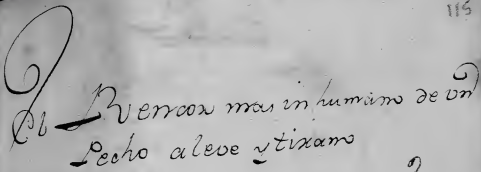 115
El Rencor mas inhumano de un
Pecho aleve y tirano